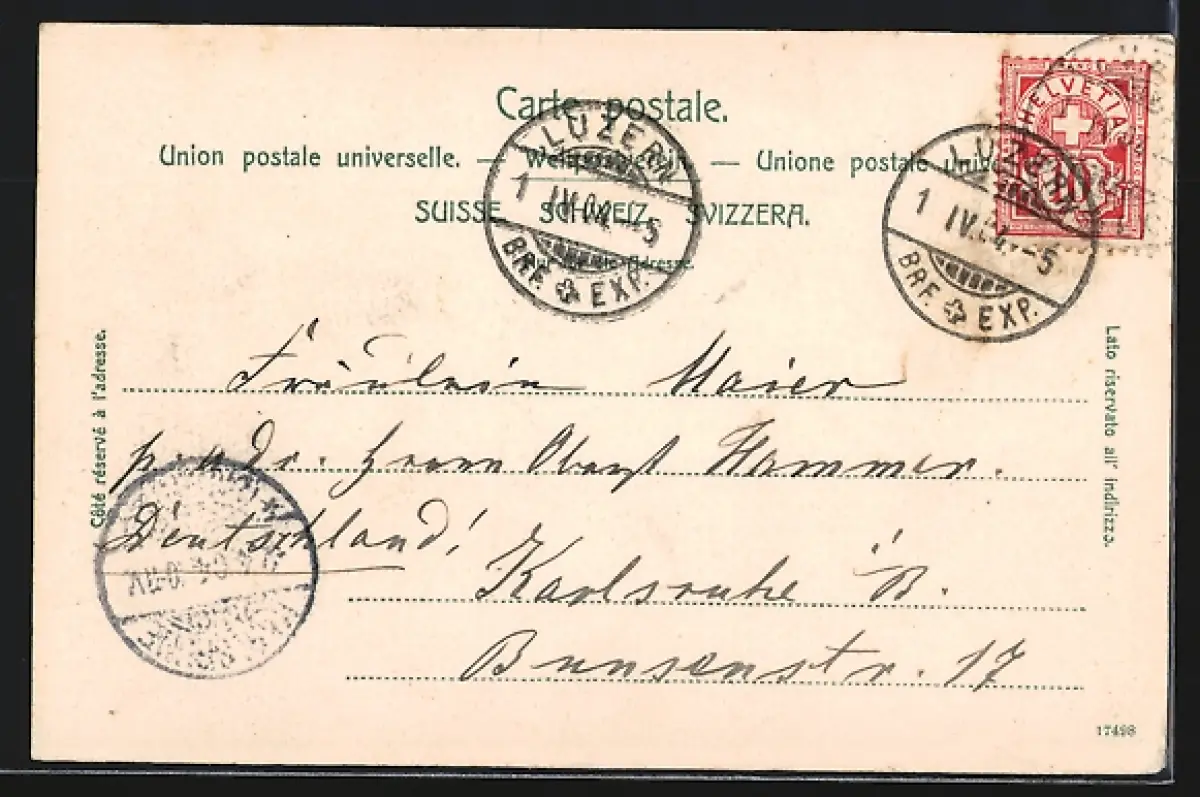 Carte postale.
Union postale universelle. — Weltpostverein. — Unione postale unive
SUISSE. SCHWEIZ. SVIZZERA.
Nur für die Adresse.
HELVETIA
10
LUZERN
1 IV.04.–5
BRF. EXP.
LUZERN
1 IV.04.–5
BRF. EXP.
Côté réservé à l'adresse.
Lato riservato all' indirizzo.
Fräulein Maier
p. adr. Herrn Oberst Hammer.
Deutschland!
Karlsruhe i/B.
Bunsenstr. 17
17498